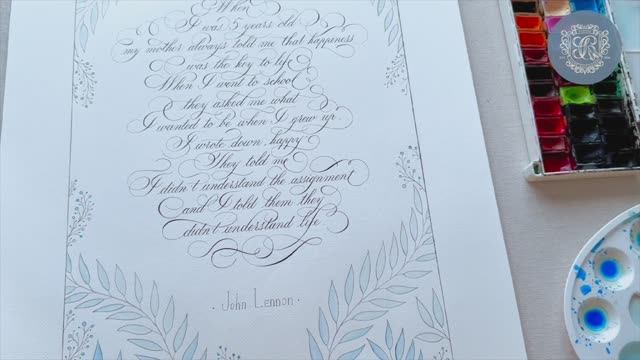 When
I was 5 years old
my mother always told me that happiness
was the key to life
When I went to school
they asked me what
I wanted to be when I grew up.
I wrote down, happy
They told me
I didn't understand the assignment
and I told them they
didn't understand life
· John Lennon ·